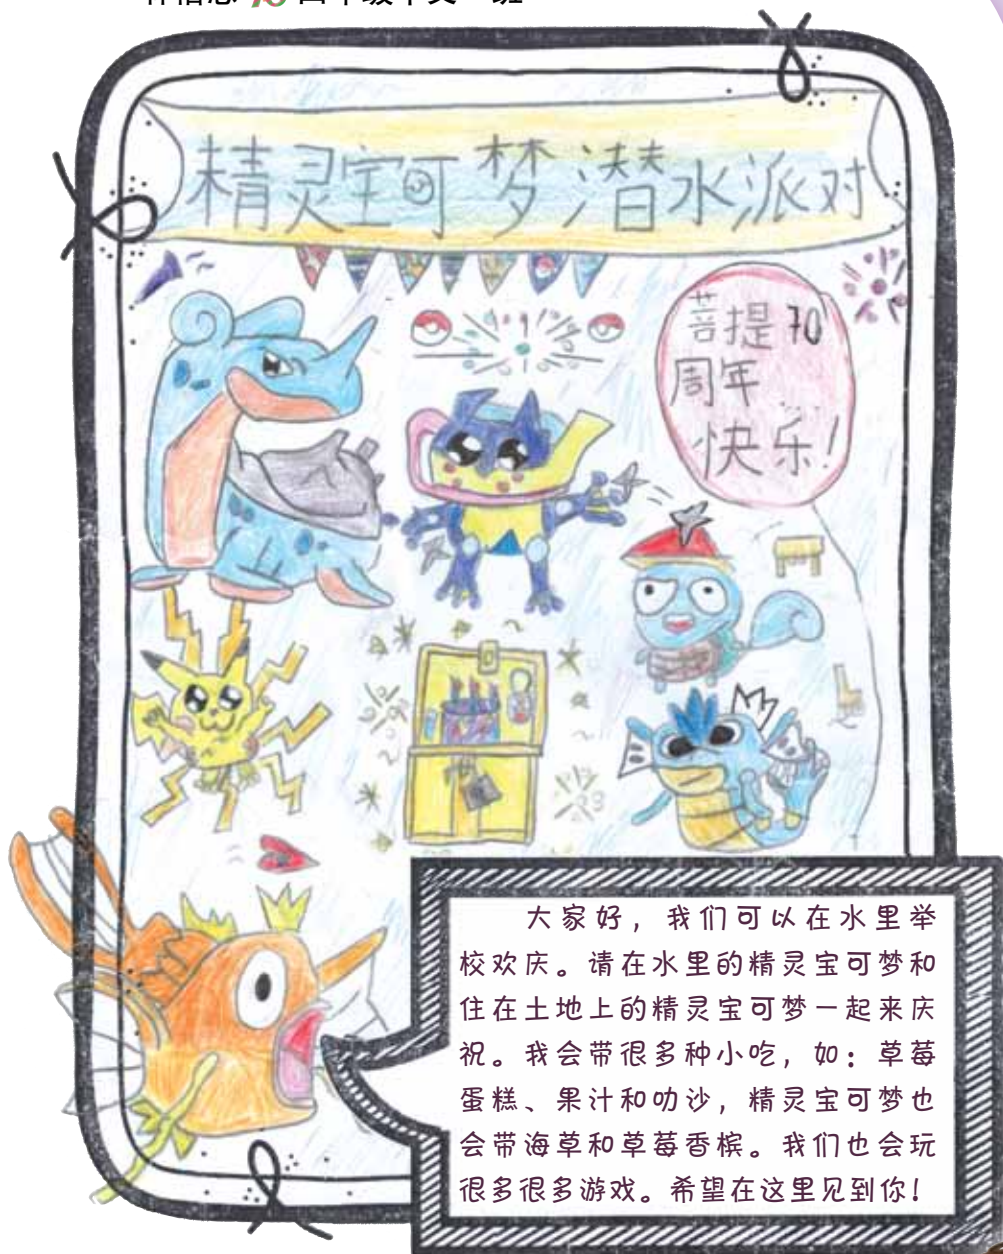 精灵宝可梦潜水派对
菩提70
周年
快乐!
大家好，我们可以在水里举
校欢庆。请在水里的精灵宝可梦和
住在土地上的精灵宝可梦一起来庆
祝。我会带很多种小吃，如：草莓
蛋糕、果汁和叻沙，精灵宝可梦也
会带海草和草莓香槟。我们也会玩
很多很多游戏。希望在这里见到你！